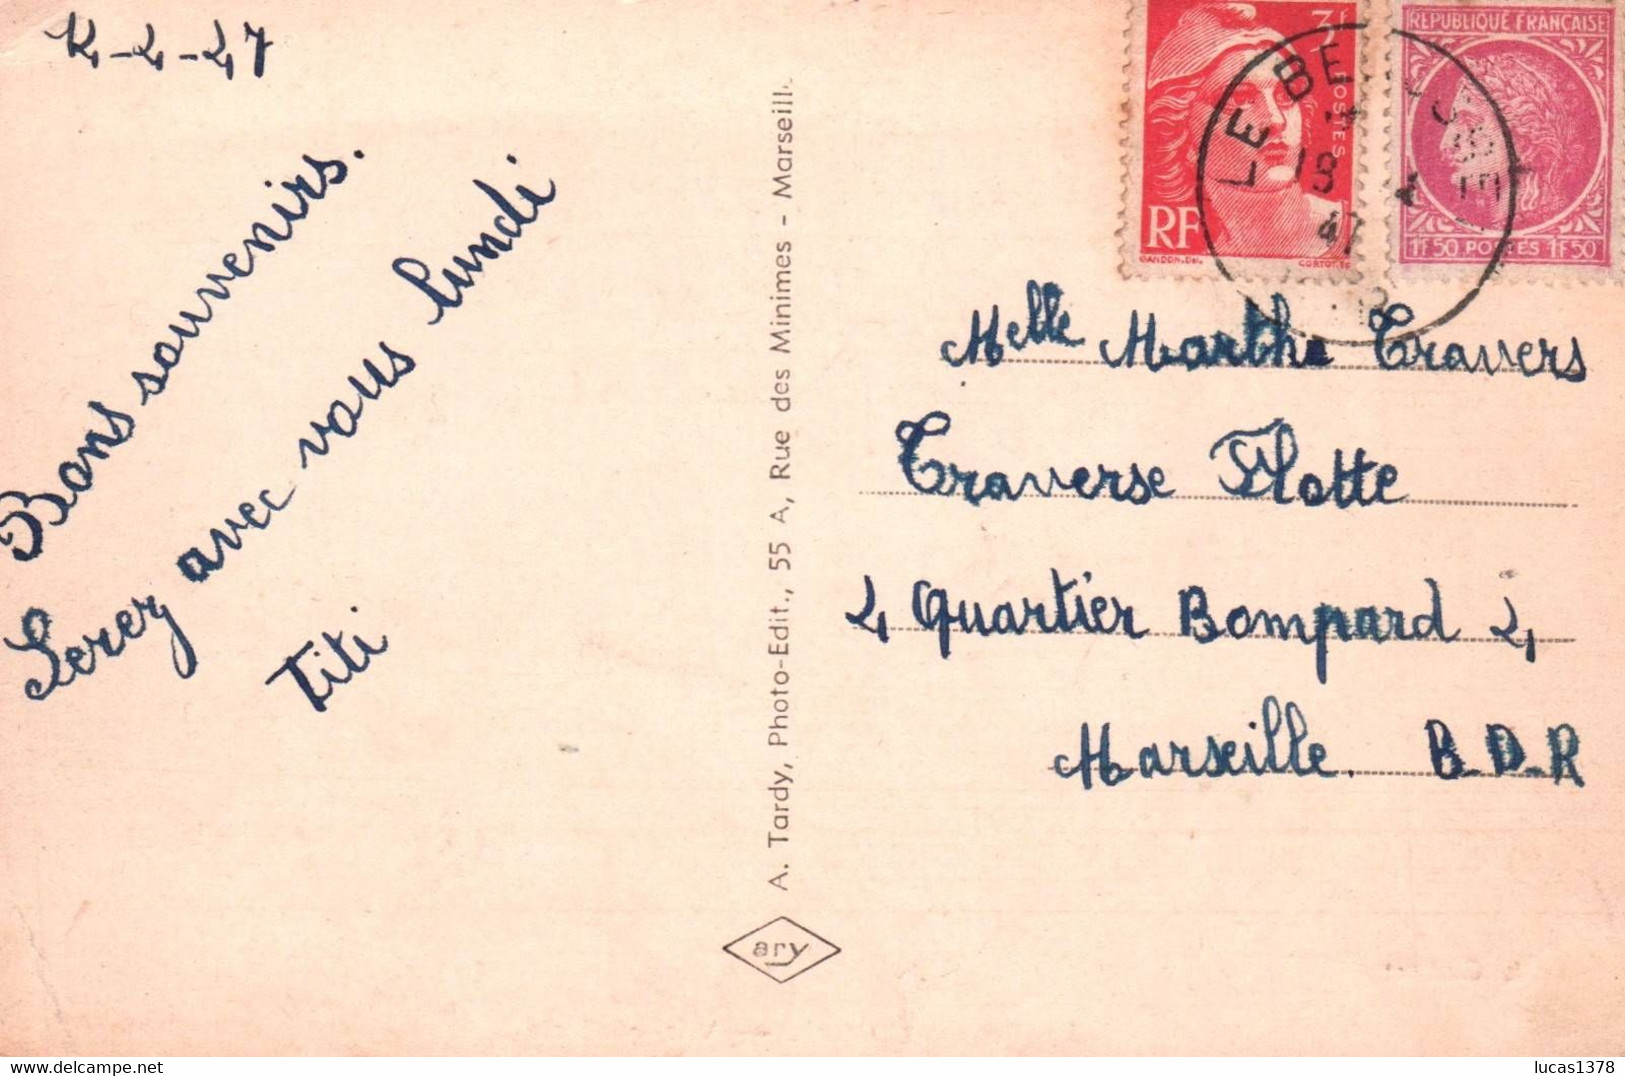 Bons souvenirs.
Serez avec vous lundi
Titi
A. Tardy, Photo-Edit., 55 A, Rue des Minimes - Marseill
ary
3F
POSTES
RF
GANDON.DEL.
CORTOT.SC
RÉPUBLIQUE FRANÇAISE
1F50 POSTES 1F50
LE BE
18
4
47
Melle Marthe Travers
Traverse Flotte
4 Quartier Bompard 4
Marseille. B-D-R
www.delcampe.net
lucas1378